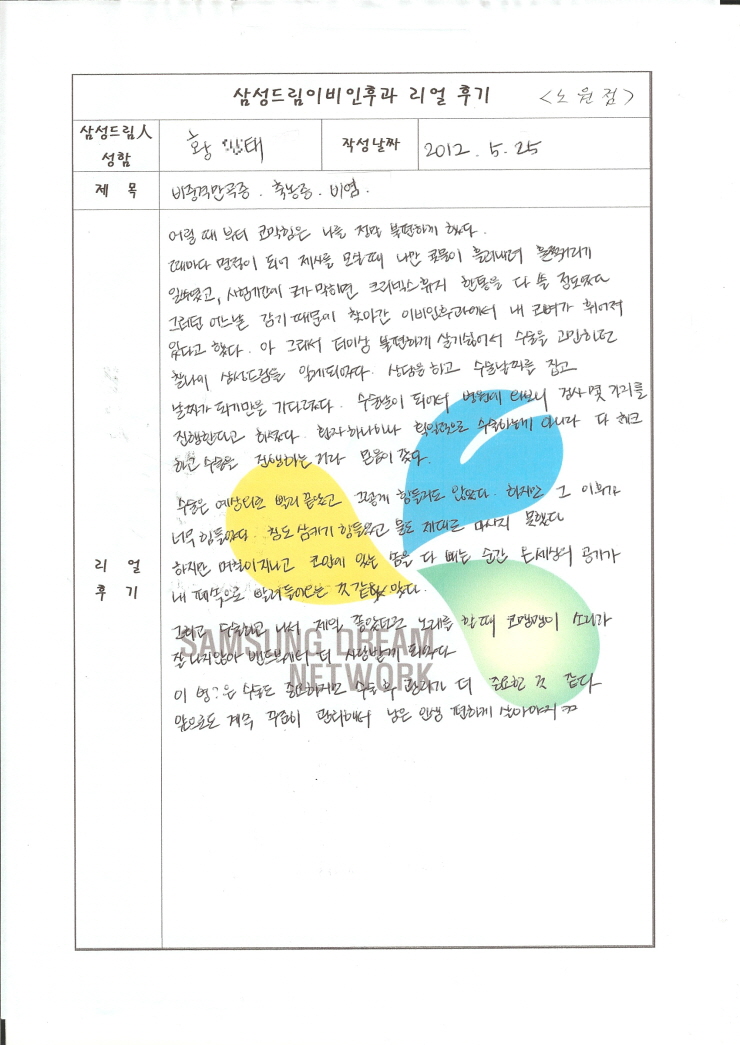 삼성드림이비인후과 리얼 후기 <노원점>
삼성드림人
성함
황 태
작성날짜
2012. 5. 25
제 목
비중격만곡증. 축농증. 비염.
리 얼
후 기
어릴 때 부터 코막힘은 나를 정말 불편하게 했다.
때마다 명절이 되어 제사를 모실때 나만 콧물이 흘러내려 훌쩍거리기
일쑤였고, 시험기간에 코가 막히면 크리넥스 휴지 한통을 다 쓸 정도였다
그러던 어느날 감기 때문에 찾아간 이비인후과에서 내 코뼈가 휘어져
있다고 했다. 아 그래서 더이상 불편하게 살기싫어서 수술을 고민하던
찰나에 삼성드림을 알게되었다. 상담을 하고 수술날짜를 잡고
날짜가 되기만을 기다렸다. 수술날이 되어서 병원에 와보니 검사 몇 가지를
진행한다고 하셨다. 환자 하나하나 수술하는게 아니라 다 체크
하고 수술을 진행하는 거라 믿음이 갔다.
수술은 예상외로 빨리 끝났고 그렇게 힘들지도 않았다. 하지만 그 이후가
너무 힘들었다 침도 삼키기 힘들었고 물도 제대로 마시지 못했다
하지만 며칠이 지나고 코안에 있는 솜을 다 빼는 순간 온세상의 공기가
내 폐속으로 빨려들어오는 것 같았다.
그리고 수술하고 나서 제일 좋았던건 노래를 할때 코맹맹이 소리가
잘 나지않아 밴드부에서 더 사랑받게 되었다
이 병?은 수술도 중요하지만 수술 후 관리가 더 중요한 것 같다
앞으로도 계속 꾸준히 관리해서 남은 인생 편하게 살아야지 ㅋㅋ
SAMSUNG DREAM
NETWORK